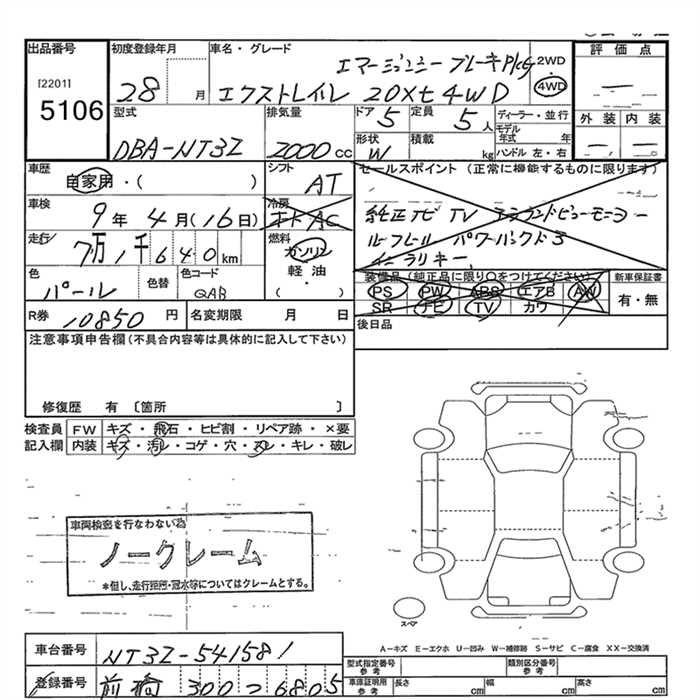 出品番号
[2201]
5106
初度登録年月
28 月
車名・グレード
エマージェンシーブレーキP/kG
エクストレイル 20Xt 4WD
2WD
4WD
評価点
ー
外装 内装
ー ー
型式
DBA-NT32
排気量
2000 cc
ドア
5
定員
5 人
ディーラー・並行
モデル年式 年
ハンドル 左・右
形状
W
積載
kg
車歴
自家用・( )
シフト
AT
車検
9年 4月(16日)
冷房
走行
7万1千640km
燃料
ガソリン
軽油
( )
色
パール
色替
色コード
QAB
R券 10850 円
名変期限 月 日
セールスポイント (正常に機能するものに限ります)
純正ナビ TV アラウンドビューモニター
ルーフレール パワーバックドア
インテリキー
装備品(純正品に限り〇をつけてください)
PS PW ABS エアB AW
SR ナビ TV カワ
新車保証書
有・無
後日品
注意事項申告欄(不具合内容等は具体的に記入して下さい)
修復歴 有 〔箇所 〕
検査員 FW キズ・飛石・ヒビ割・リペア跡・×要
記入欄 内装 キズ・汚レ・コゲ・穴・スレ・キレ・破レ
車両検査を行なわない為
ノークレーム
*但し、走行距離・冠水等についてはクレームとする。
スペア
A-キズ E-エクボ U-凹み W-補修跡 S-サビ C-腐食 XX-交換済
車台番号 NT32-541581
登録番号 前橋 300 つ 6805
型式指定番号 参考
類別区分番号 参考
車庫証明用 参考
長さ cm
幅 cm
高さ cm